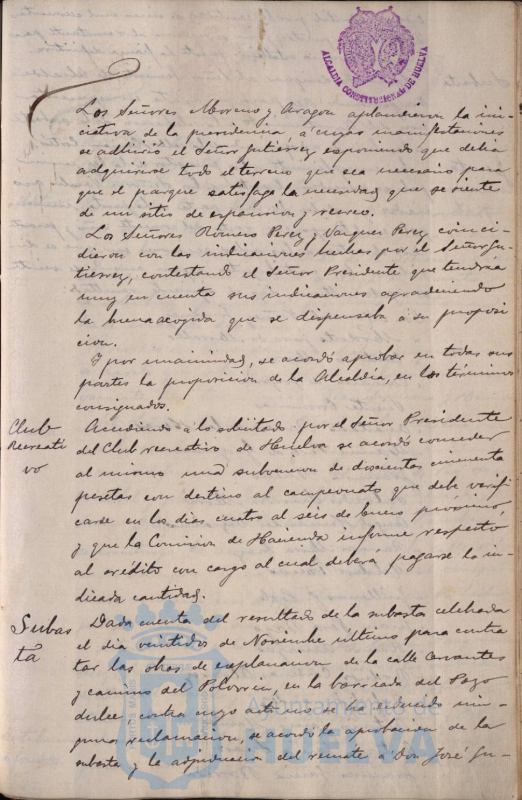 ALCALDIA CONSTITUCIONAL DE HUELVA
Los Señores Moreno y Aragon aplaudieron la ini-
ciativa de la presidencia, a cuyas manifestaciones
se adhirió el Señor Gutierrez esponiendo que debia
adquirirse todo el terreno que sea necesario, para
que el parque satisfaga la necesidad que se siente
de un sitio de espansion y recreo.
Los Señores Romero Perez y Vazquez Perez coinci-
dieron con las indicaciones hechas por el Señor Gu-
tierrez, contestando el Señor Presidente que tendria
muy en cuenta sus indicaciones agradeciendo
la buena acojida que se dispensaba á su proposi
cion.
Y por unanimidad, se acordó aprobar en todas sus
partes la proposicion de la Alcaldia, en los términos
consignados.
Club
Recreati
vo
Accediendo a lo solicitado por el Señor Presidente
del Club recreativo de Huelva se acordó conceder
al mismo una subvencion de doscientas cincuenta
pesetas con destino al campeonato que debe verifi
carse en los dias cuatro al seis de Enero próximo,
y que la Comision de Hacienda informe respecto
al crédito con cargo al cual deberá pagarse la in-
dicada cantidad.
Subas
ta
Dada cuenta del resultado de la subasta celebrada
el dia veintidos de Noviembre último para contra
tar las obras de explanacion de la calle Cervantes
y camino del Polvorin, en la barriada del Pozo
dulce contra cuyo acto no se ha deducido nin-
guna reclamacion, se acordó la aprobacion de la
subasta y la adjudicacion del remate a Don José Gu-
Ayuntamiento de
HUELVA